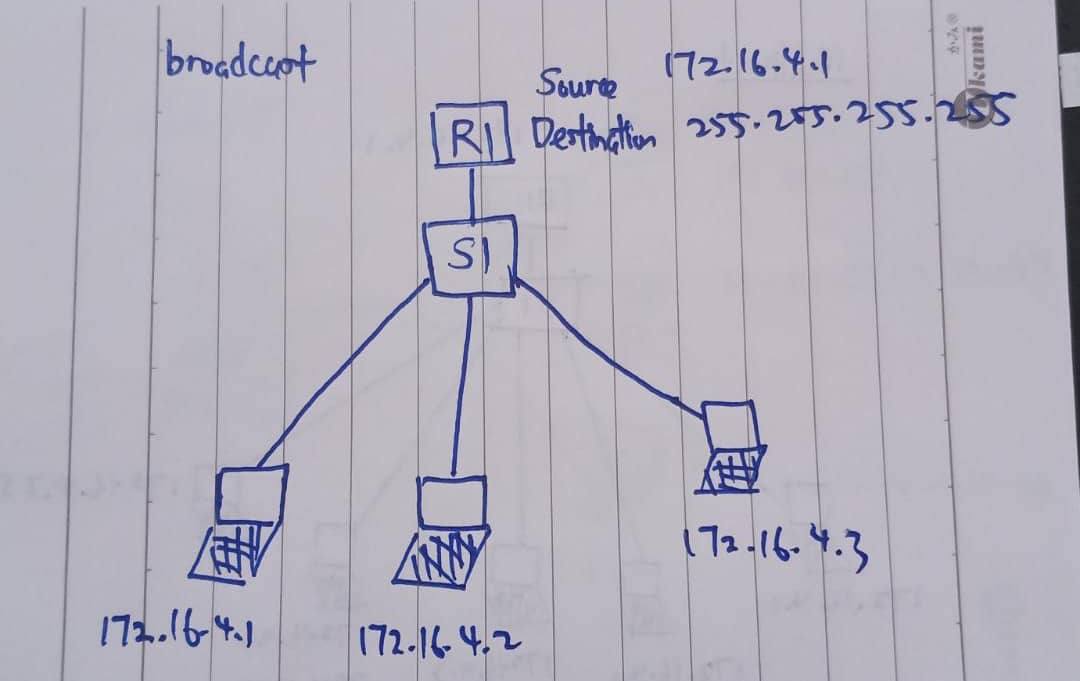 broadcast
Source 172.16.4.1
R1
Destination 255.255.255.255
S1
172.16.4.3
172.16.4.1
172.16.4.2
kami